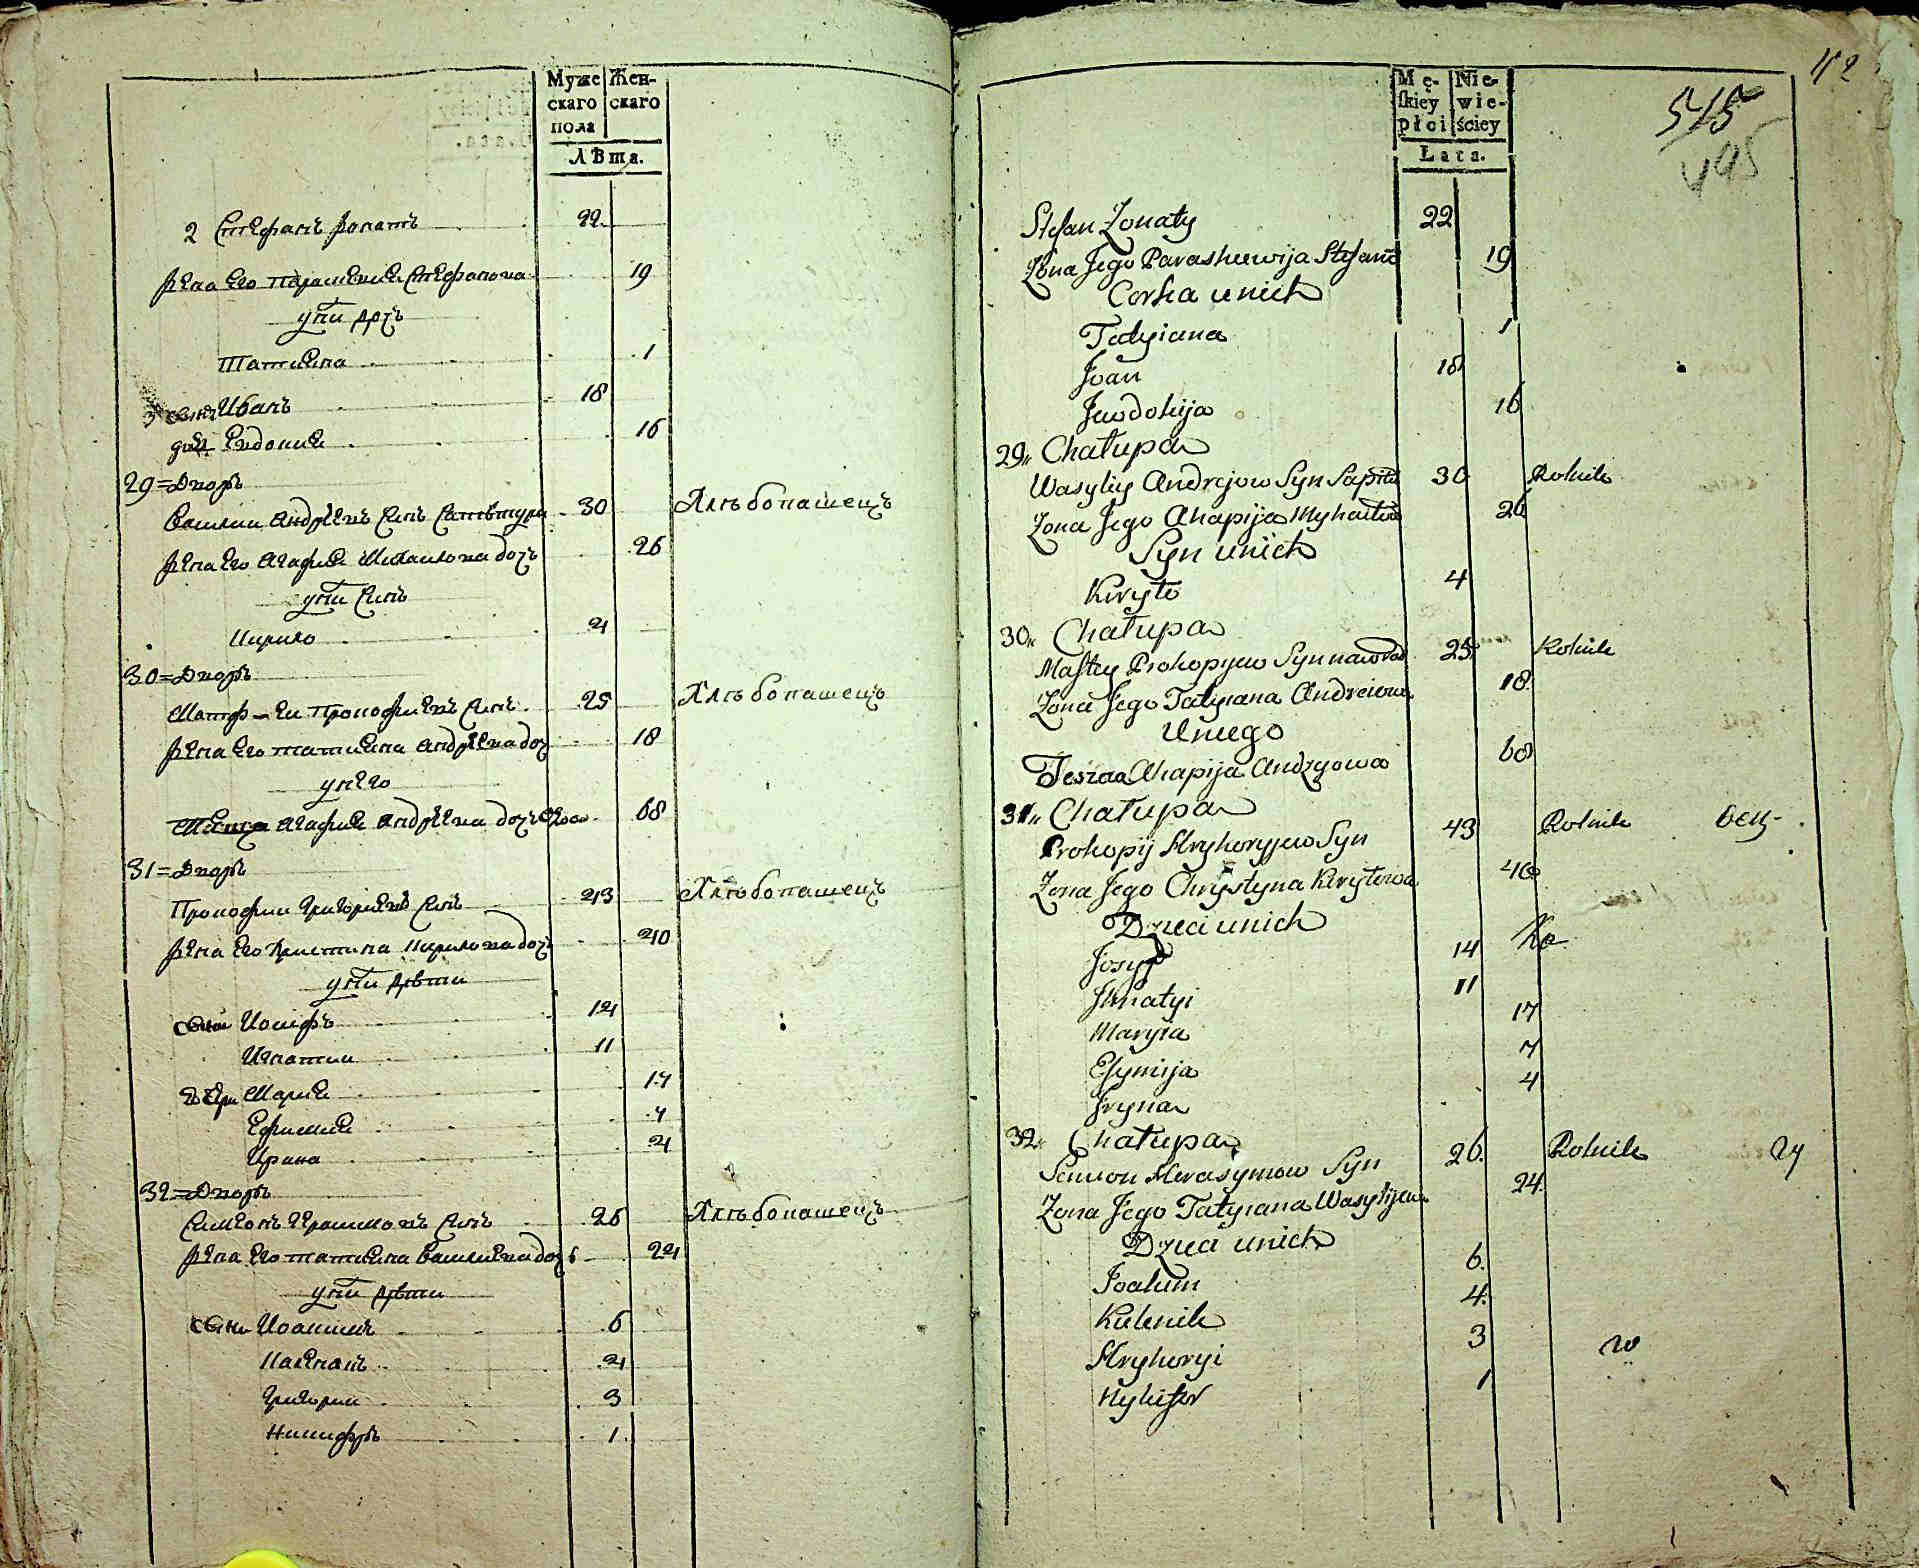 Муже
скаго
пола
Жен-
скаго
Лѣта.
2 Стефанъ Жонатъ 22
жена его Параскевия Стефанова 19
у них дочъ
Татияна 1
3 сынъ Иванъ 18
дочъ Евдокия 16
29 = Дворъ
Василий Андрѣевъ сынъ 30 Хлѣбопашецъ
жена его Агафия Михайлова дочъ 26
у них сынъ
Кирило 4
30 = Дворъ
Матфей Прокофиевъ сынъ 25 Хлѣбопашецъ
жена его Татияна Андрѣева дочъ 18
у него
Агафия Андрѣева дочъ 68
31 = Дворъ
Прокофий Григориевъ сынъ 43 Хлѣбопашецъ
жена его Христина Кирилова дочъ 40
у них дѣти
сыны Иосифъ 14
Игнатий 11
дочери Мария 17
Ефимия 7
Ирина 4
32 = Дворъ
Симеонъ Герасимовъ сынъ 26 Хлѣбопашецъ
жена его Татияна Василиева дочъ 24
у них дѣти
сыны Иоакимъ 6
Каленикъ 4
Григорий 3
Никифоръ 1
42
515
495
Mę-
ſkiey
płci
Nie-
wie-
ściey
Lata.
Stefan Zonaty 22
Zona Jego Paraskewija Stefano 19
Corka u nich
Tatyiana 1
Joan 18
Jewdokija 16
29 Chałupa
Wasyliy Andrejow Syn 30 Rolnik
Zona Jego Ahapija Myhaiłow 26
Syn u nich
Kiryło 4
30 Chałupa
Maftey Prokopyjew Syn 25 Rolnik
Zona Jego Tatyiana Andreiowa 18
U niego
Teszcza Ahapija Andryowa 68
31 Chałupa
Prokopij Hryhoryjew Syn 43 Rolnik
Zona Jego Chrystyna Kiryłowa 40
Dzieci u nich
Josyf 14
Ihnatyi 11
Maryia 17
Efymija 7
Iryna 4
32 Chałupa
Semion Herasymow Syn 26 Rolnik
Zona Jego Tatyiana Wasylijewa 24
Dzieci u nich
Joakim 6
Kalenik 4
Hryhoryi 3
Nykifor 1